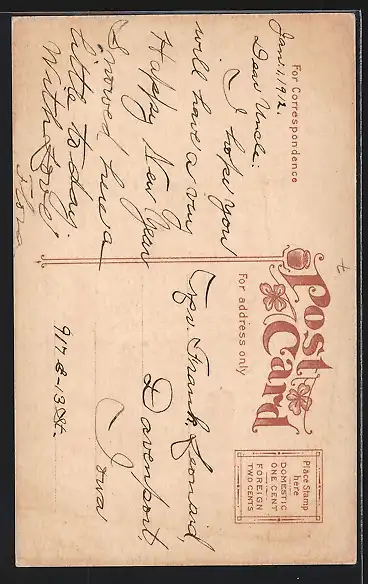 Post Card
For Correspondence
For address only
Place Stamp
here
DOMESTIC
ONE CENT
FOREIGN
TWO CENTS
Jan. 1, 1912.
Dear Uncle:
I hope you
will have a very
Happy New Year
Snowed here a
little to day.
With Love
Flora
Mr. Frank Leonard,
Davenport,
Iowa
917 E-13 St.